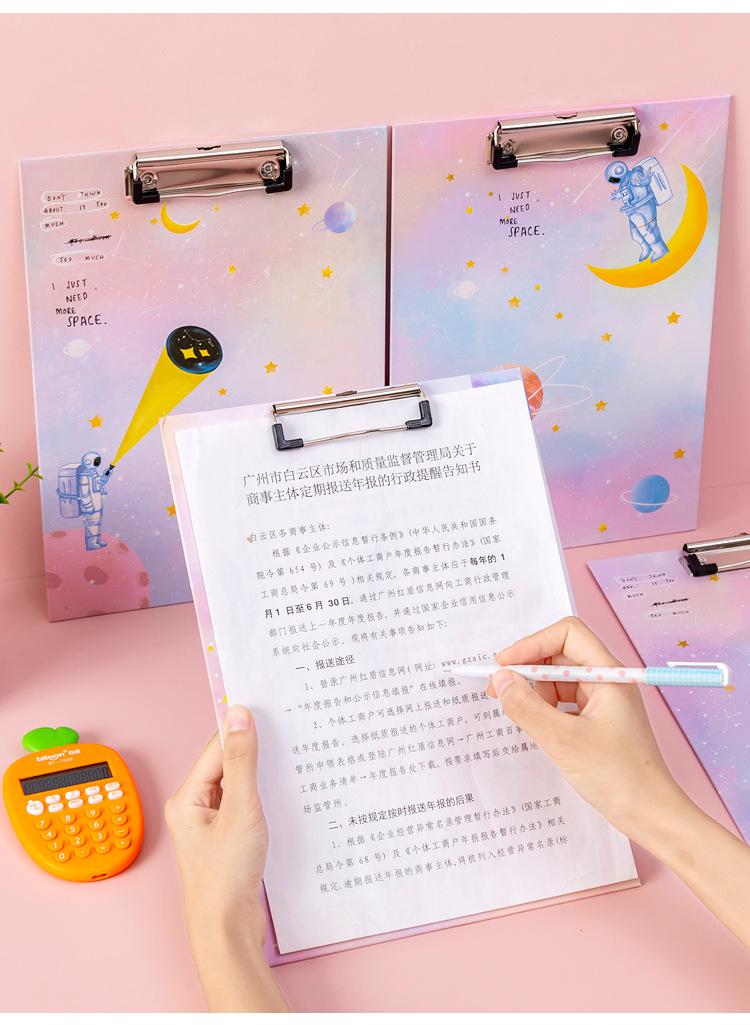 DON'T THINK
ABOUT IT TOO
MUCH
TOO MUCH
I JUST
NEED
MORE
SPACE.
I JUST
NEED
MORE
SPACE.
广州市白云区市场和质量监督管理局关于
商事主体定期报送年报的行政提醒告知书
白云区各商事主体:
根据《企业公示信息暂行条例》(中华人民共和国国务
院令第 654 号) 及《个体工商户年度报告暂行办法》(国家
工商总局令第 69 号 )相关规定, 各商事主体应于每年的 1
月1 日至6 月 30 日, 通过广州红盾信息网向工商行政管理
部门报送上一年度年度报告, 并通过国家企业信用信息公示
系统向社会公示。现将有关事项告知如下:
一、报送途径
1、登录广州红盾信息网( 网址: www.gzaic.g
→ “年度报告和公示信息填报” 在线填报。
2、个体工商户可选择网上报送和纸质报送
送年度报告。选择纸质报送的个体工商户, 可到属
管所申领表格或登陆广州红盾信息网→广州工商百事
工商业务清单→年度报告处下载, 按要求填写后交给属地
场监管所。
二、未按规定按时报送年报的后果
1、根据《企业经营异常名录管理暂行办法》(国家工商
总局令第 68 号) 及《个体工商户年报报告暂行办法》相关
规定,逾期报送年报的商事主体,将被列入经营异常名录(标
DON'T THINK
ABOUT IT TOO
MUCH
TOO MUCH
bitoon
7 8 9
4 5 6
1 2 3
0